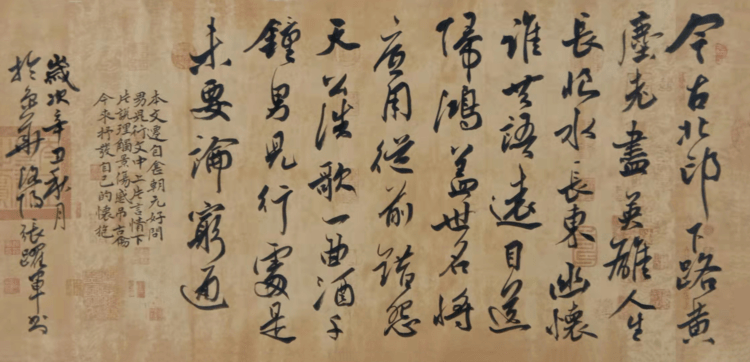 今古北邙下路黄
塵老盡英雄人生
長恨水長東幽懷
誰共語遠目送
歸鴻蓋世名將
底用從前錯怨
天公浩歌一曲酒千
鐘男兒行處是
未要論窮通
本文選自金朝元好問
男兒行文中上片言情下
片説理觸景傷感吊古論
今來抒發自己的懷抱
歲次辛丑秋月
於華洛陽張躍軍書